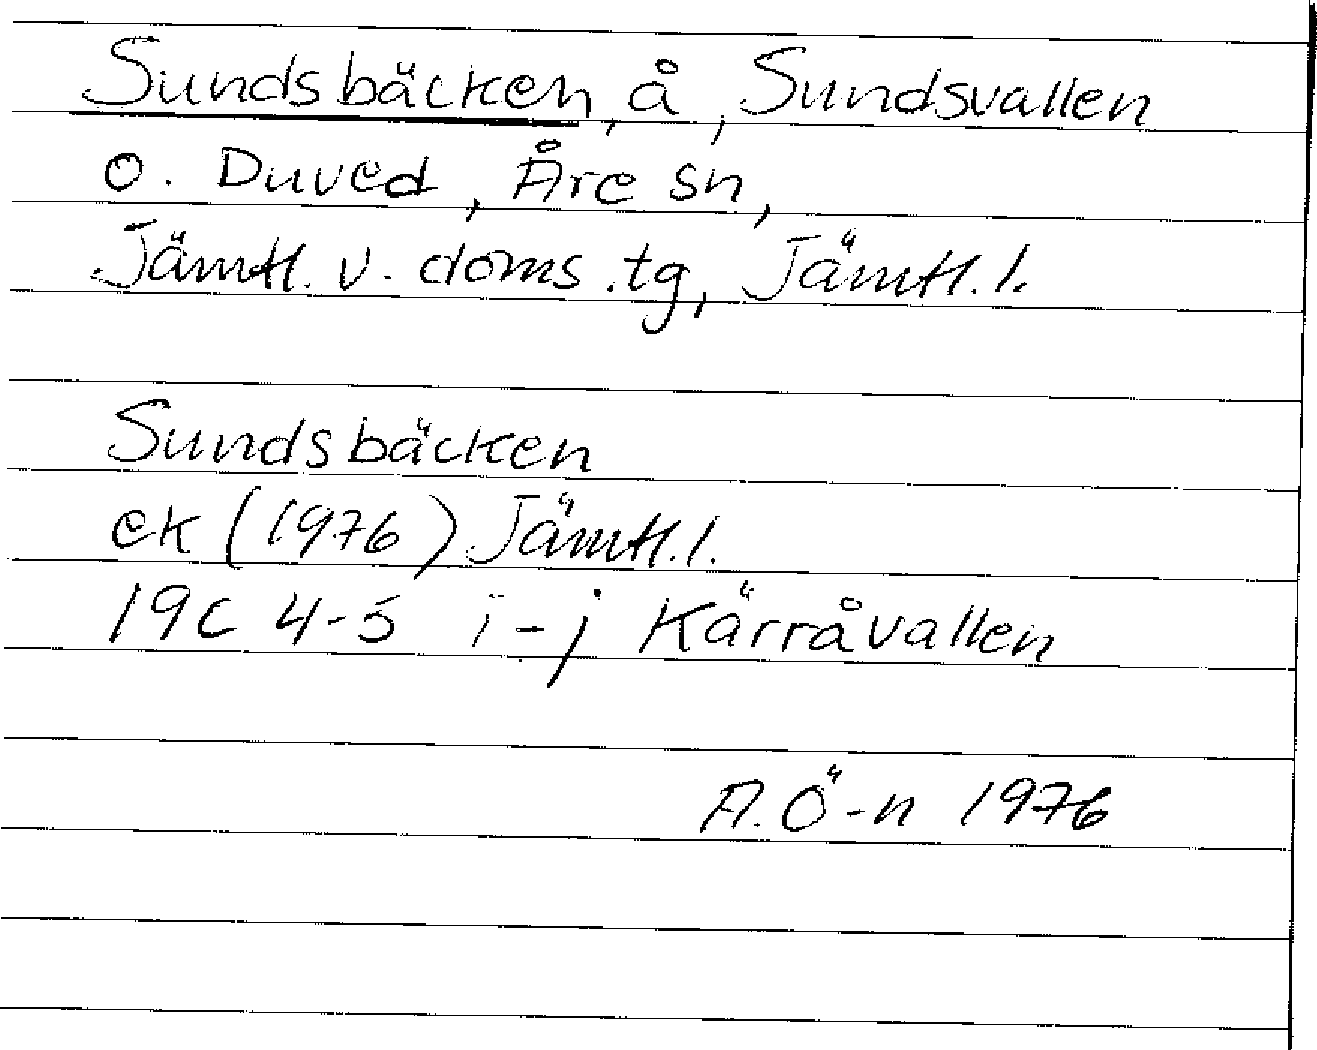 Sundsbäcken, å, Sundsvallen
o. Duved, Åre sn,
Jämtl. v. doms.tg, Jämtl.l.
Sundsbäcken
ek (1976) Jämtl.l.
19C 4-5 i-j Kärråvallen
A.Ö-n 1976